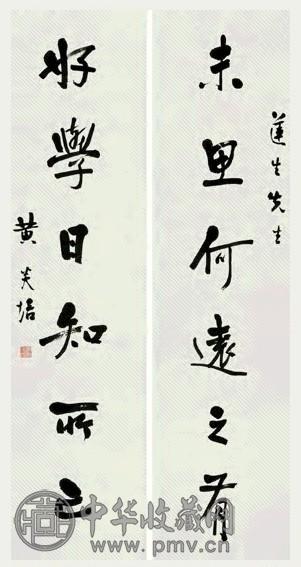 蓮生先生
未思何遠之有
好學日知所亡
黃炎培
中华收藏网
www.pmv.cn